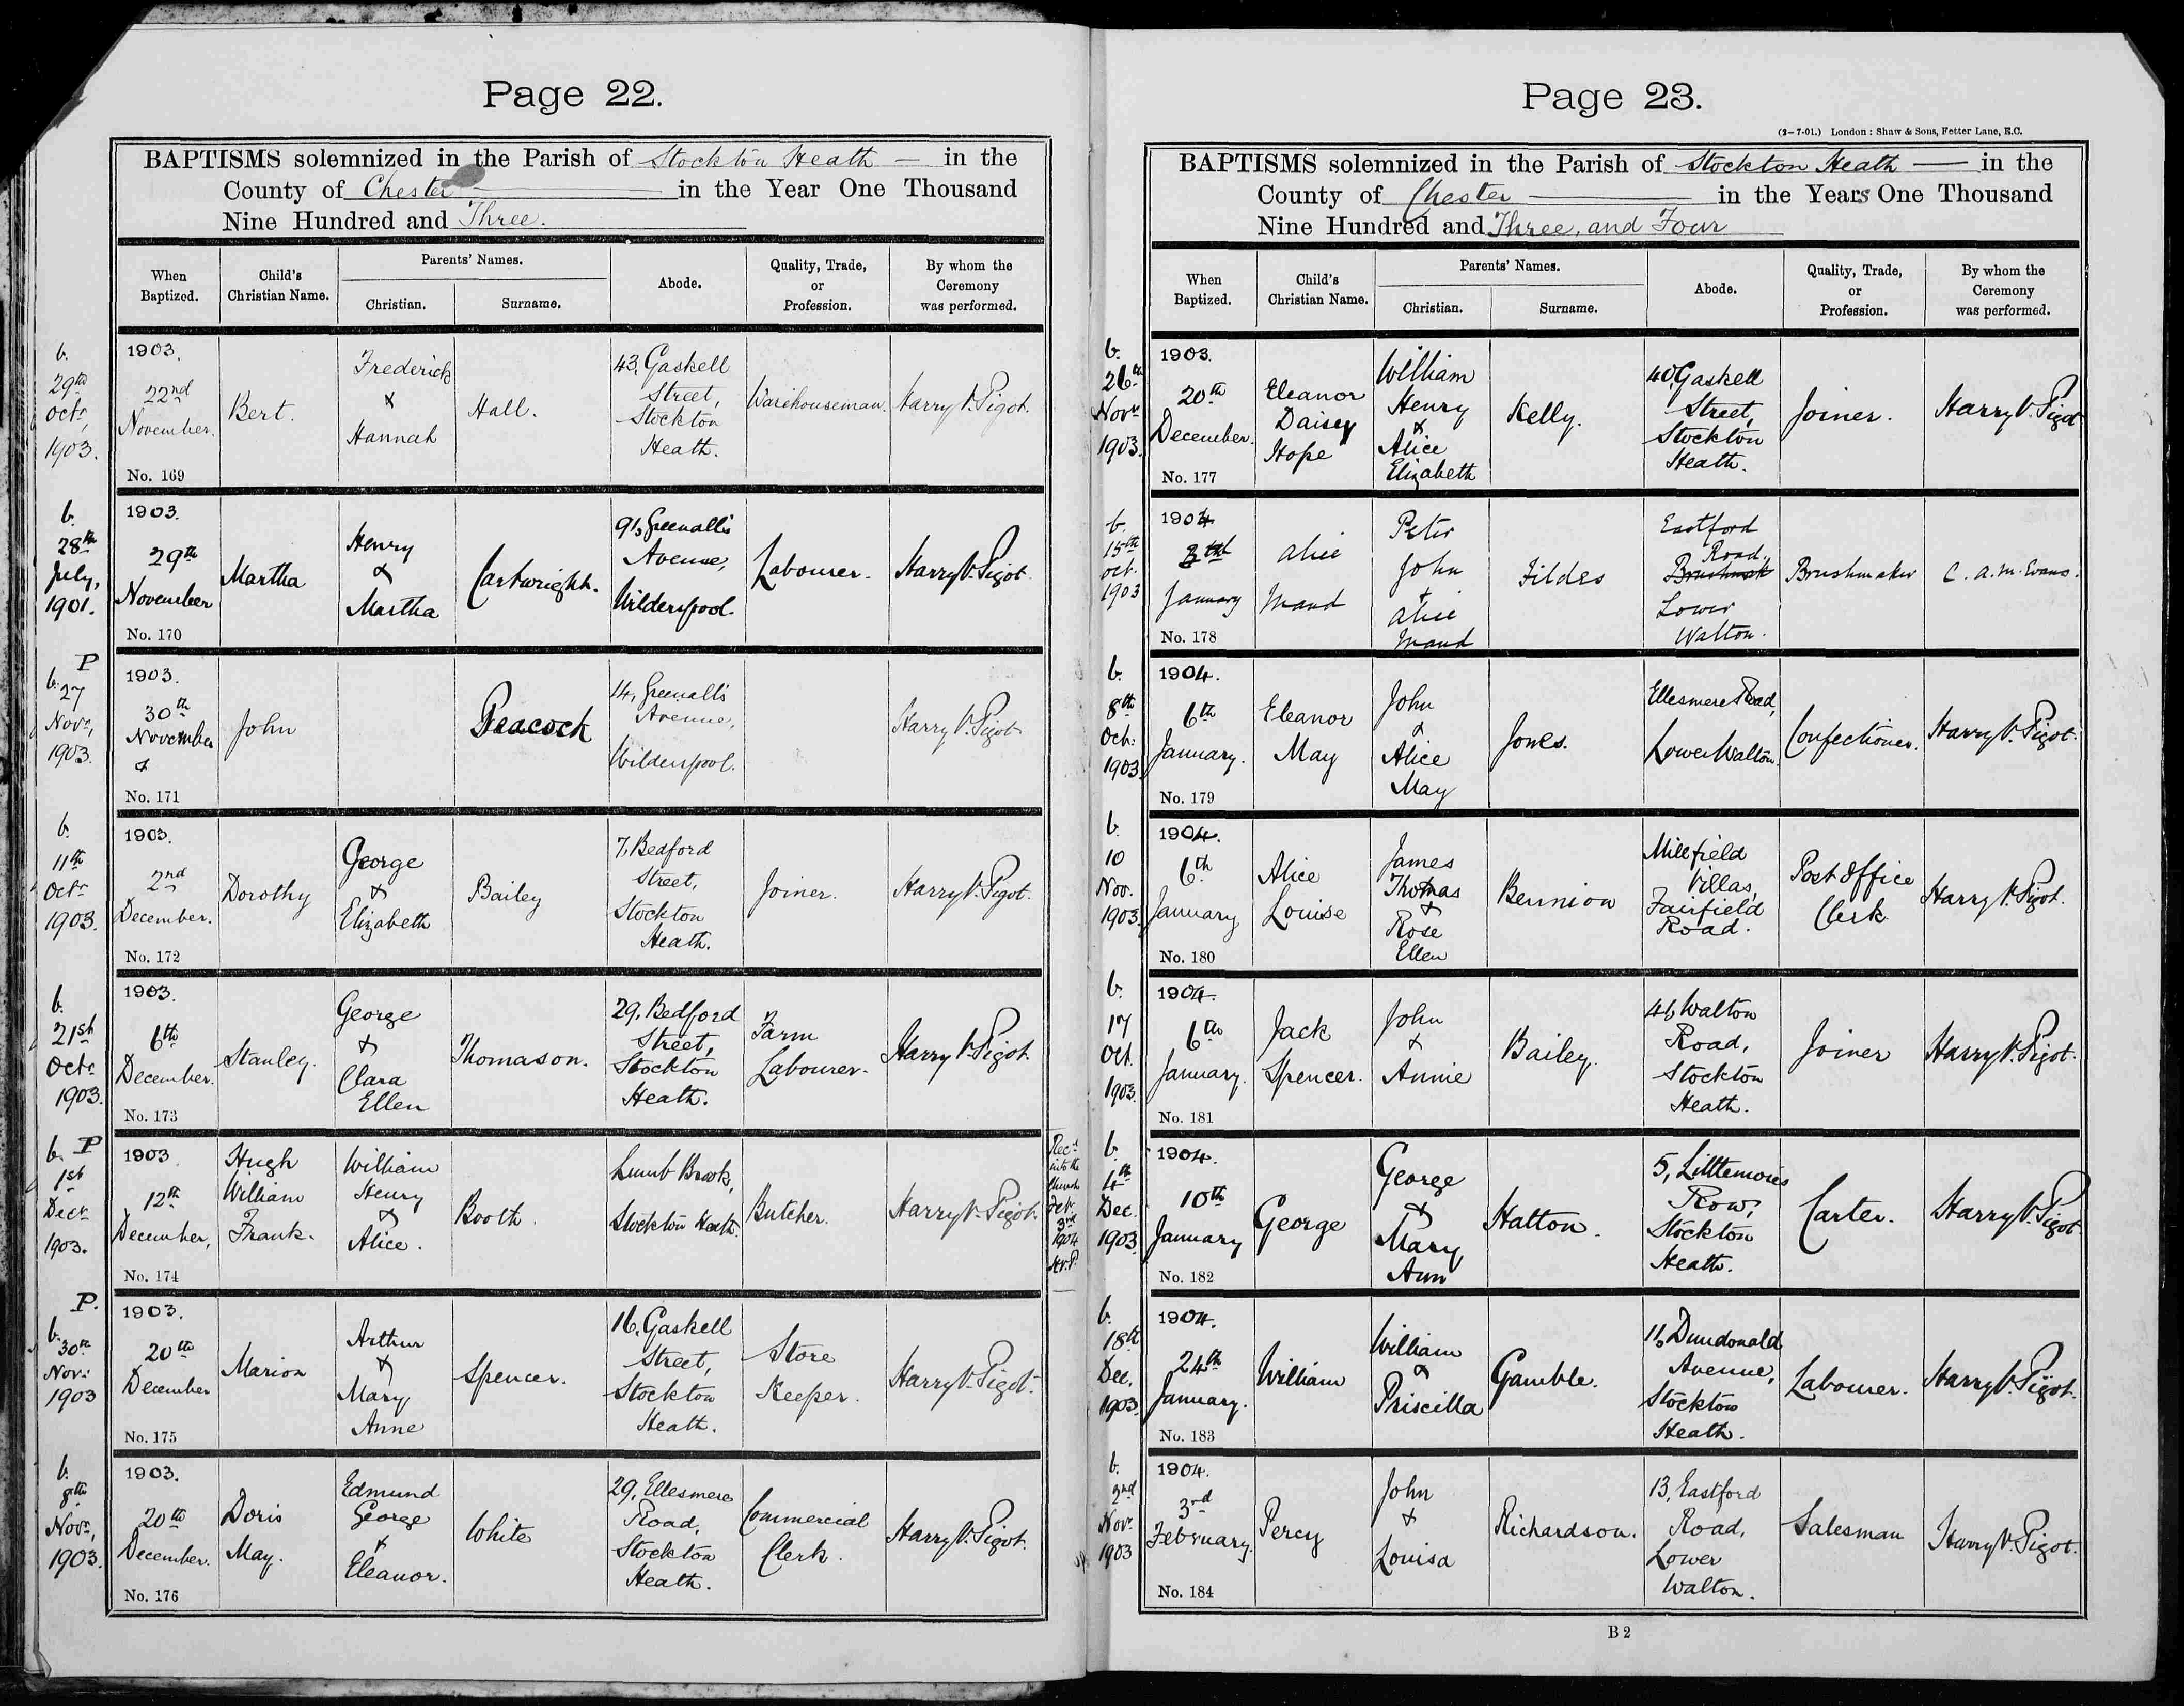 Page 22.
BAPTISMS solemnized in the Parish of Stockton Heath — in the
County of Chester in the Year One Thousand
Nine Hundred and Three.
When Baptized.
Child's Christian Name.
Parents' Names.
Christian.
Surname.
Abode.
Quality, Trade, or Profession.
By whom the Ceremony was performed.
b. 29th Octr, 1903.
1903. 22nd November.
No. 169
Bert.
Frederick & Hannah
Hall.
43, Gaskell
Street,
Stockton
Heath.
Warehouseman.
Harry V. Pigot.
b. 28th July, 1901.
1903. 29th November
No. 170
Martha
Henry & Martha
Cartwright.
91, Greenall's
Avenue,
Wilderspool.
Labourer.
Harry V. Pigot.
P
b. 27 Novr, 1903.
1903. 30th November &
No. 171
John
Peacock
14, Greenall's
Avenue,
Wilderspool.
Harry V. Pigot.
b. 11th Octr 1903.
1903. 2nd December.
No. 172
Dorothy
George & Elizabeth
Bailey
7, Bedford
Street,
Stockton
Heath.
Joiner.
Harry V. Pigot.
b. 21st Octr 1903.
1903. 6th December.
No. 173
Stanley.
George & Clara Ellen
Thomason.
29, Bedford
Street,
Stockton
Heath.
Farm
Labourer.
Harry V. Pigot.
b. P 1st Decr 1903.
1903 12th December,
No. 174
Hugh
William
Frank.
William Henry & Alice.
Booth.
Lumb Brook,
Stockton Heath.
Butcher.
Harry V. Pigot.
P.
b. 30th Nov: 1903
1903. 20th December
No. 175
Marion
Arthur & Mary Anne
Spencer.
16, Gaskell
Street,
Stockton
Heath.
Store
Keeper.
Harry V. Pigot.
b. 8th Novr, 1903.
1903. 20th December.
No. 176
Doris
May.
Edmund George & Eleanor.
White
29, Ellesmere
Road,
Stockton
Heath.
Commercial
Clerk.
Harry V. Pigot.
Page 23.
(2—7-01.) London: Shaw & Sons, Fetter Lane, E.C.
BAPTISMS solemnized in the Parish of Stockton Heath — in the
County of Chester in the Years One Thousand
Nine Hundred and Three, and Four
When Baptized.
Child's Christian Name.
Parents' Names.
Christian.
Surname.
Abode.
Quality, Trade, or Profession.
By whom the Ceremony was performed.
b. 26th Novr 1903.
1903. 20th December.
No. 177
Eleanor
Daisey
Hope
William Henry & Alice Elizabeth
Kelly.
40, Gaskell
Street,
Stockton
Heath.
Joiner.
Harry V. Pigot
b. 15th Oct. 1903
1904 January
No. 178
Alice
Maud
Peter John + Alice Maud
Fildes
Eastford
Road,
Lower
Walton.
Brushmaker
C. A. M. Evans.
b. 8th Oct: 1903
1904. 6th January.
No. 179
Eleanor
May
John & Alice May
Jones.
Ellesmere Road,
Lower Walton.
Confectioner.
Harry V. Pigot.
b. 10 Nov. 1903
1904. 6th January
No. 180
Alice
Louise
James Thomas & Rose Ellen
Bennion
Millfield
Villas,
Fairfield
Road.
Post Office
Clerk
Harry V. Pigot.
b. 17 Oct. 1903.
1904. 6th January.
No. 181
Jack
Spencer.
John & Annie
Bailey.
41, Walton
Road,
Stockton
Heath.
Joiner
Harry V. Pigot.
Recd
into the
Church
Feb:
3rd
1904
H.V.P.
b. 4th Dec. 1903
1904. 10th January
No. 182
George
George & Mary Ann
Hatton.
5, Littlemores
Row,
Stockton
Heath.
Carter.
Harry V. Pigot.
b. 18th Dec. 1903
1904. 24th January.
No. 183
William
William & Priscilla
Gamble.
11, Dundonald
Avenue,
Stockton
Heath.
Labourer.
Harry V. Pigot.
b. 2nd Novr 1903
1904. 3rd February.
No. 184
Percy
John & Louisa
Richardson.
13, Eastford
Road,
Lower
Walton.
Salesman
Harry V. Pigot.
B 2